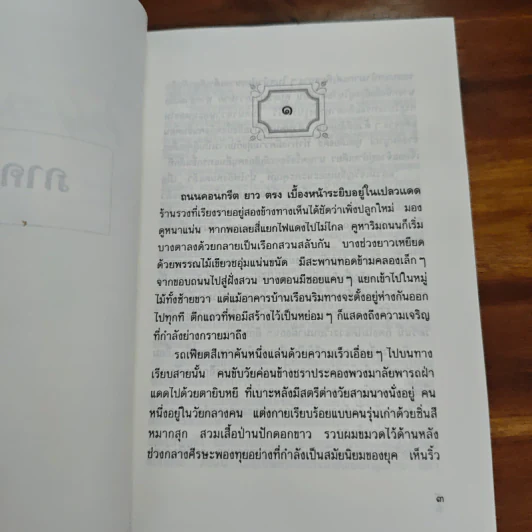 ๑
ถนนคอนกรีต ยาว ตรง เบื้องหน้าระยิบอยู่ในเปลวแดด
ร้านรวงที่เรียงรายอยู่สองข้างทางเห็นได้ชัดว่าเพิ่งปลูกใหม่ มอง
ดูหนาแน่น หากพอเลยสี่แยกไฟแดงไปไม่ไกล คูหาริมถนนก็เริ่ม
บางตาลงด้วยกลายเป็นเรือกสวนสลับกัน บางช่วงยาวเหยียด
ด้วยพรรณไม้เขียวชอุ่มแน่นขนัด มีสะพานทอดข้ามคลองเล็กๆ
จากขอบถนนไปสู่ฝั่งสวน บางตอนมีซอยแคบๆ แยกเข้าไปในหมู่
ไม้ทั้งซ้ายขวา แต่แม้อาคารบ้านเรือนริมทางจะตั้งอยู่ห่างกันออก
ไปทุกที ตึกแถวที่พอมีสร้างไว้เป็นหย่อมๆ ก็แสดงถึงความเจริญ
ที่กำลังย่างกรายมาถึง
รถเฟียตสีเทาคันหนึ่งแล่นด้วยความเร็วเอื่อยๆ ไปบนทาง
เรียบสายนั้น คนขับวัยค่อนข้างชราประคองพวงมาลัยพารถฝ่า
แดดไปด้วยตายิบหยี ที่เบาะหลังมีสตรีต่างวัยสามนางนั่งอยู่ คน
หนึ่งอยู่ในวัยกลางคน แต่งกายเรียบร้อยแบบคนรุ่นเก่าด้วยซิ่นสี
หมากสุก สวมเสื้อป่านปักดอกขาว รวบผมขมวดไว้ด้านหลัง
ช่วงกลางศีรษะพองทุยอย่างที่กำลังเป็นสมัยนิยมของยุค เห็นริ้ว
๓